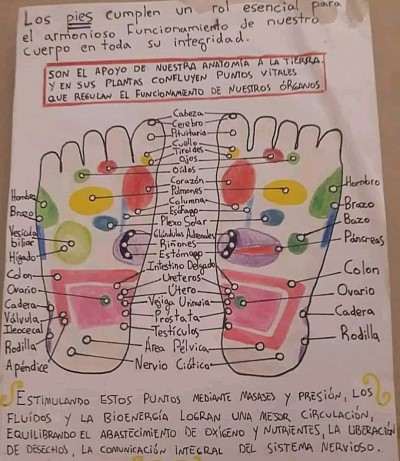 Los pies cumplen un rol esencial para
el armonioso funcionamiento de nuestro
cuerpo en toda su integridad.
SON EL APOYO DE NUESTRA ANATOMÍA A LA TIERRA.
Y EN SUS PLANTAS CONFLUYEN PUNTOS VITALES
QUE REGULAN EL FUNCIONAMIENTO DE NUESTROS ÓRGANOS
Cabeza
Cerebro
Pituitaria
Cuello
Tiroides
Ojos
Oídos
Corazón
Pulmones
Columna
Esófago
Plexo Solar
Glándulas Adrenales
Riñones
Estómago
Intestino Delgado
Ureteros
Útero
Vejiga Urinaria
Próstata
Testículos
Área Pélvica
Nervio Ciático
Hombro
Brazo
Vesícula
biliar
Hígado
Colon
Ovario
Cadera
Válvula
Ileocecal
Rodilla
Apéndice
Hombro
Brazo
Bazo
Páncreas
Colon
Ovario
Cadera
Rodilla
ESTIMULANDO ESTOS PUNTOS MEDIANTE MASAJES Y PRESIÓN, LOS
FLUÍDOS Y LA BIOENERGÍA LOGRAN UNA MEJOR CIRCULACIÓN,
EQUILIBRANDO EL ABASTECIMIENTO DE OXÍGENO Y NUTRIENTES, LA LIBERACIÓN
DE DESECHOS, LA COMUNICACIÓN INTEGRAL DEL SISTEMA NERVIOSO.